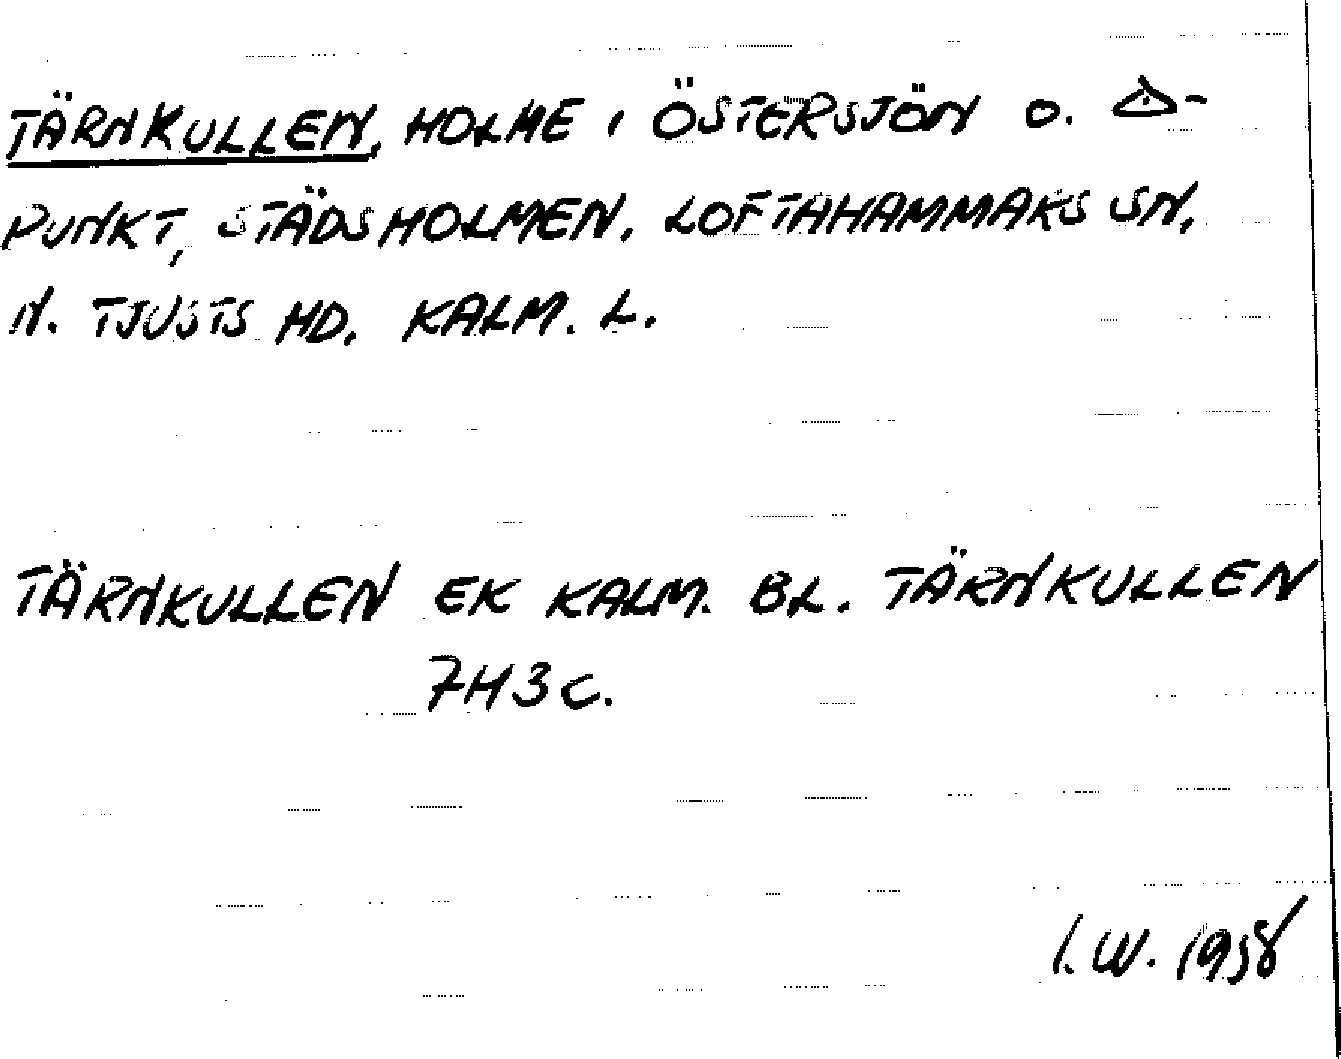 TÄRNKULLEN, HOLME I ÖSTERSJÖN O. △-
PUNKT, STÄDSHOLMEN, LOFTAHAMMARS SN,
N. TJUSTS HD. KALM. L.
TÄRNKULLEN EK KALM. BL. TÄRNKULLEN
7H3c.
I.W. 1958